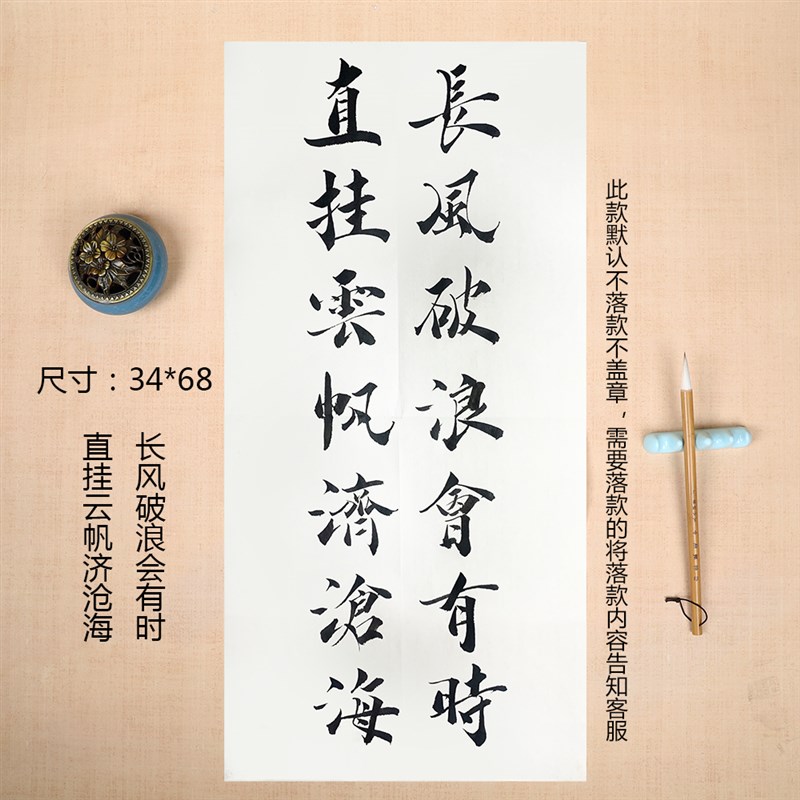 長風破浪會有時
直挂雲帆濟滄海
尺寸：34*68
长风破浪会有时
直挂云帆济沧海
此款默认不落款不盖章，需要落款的将落款内容告知客服